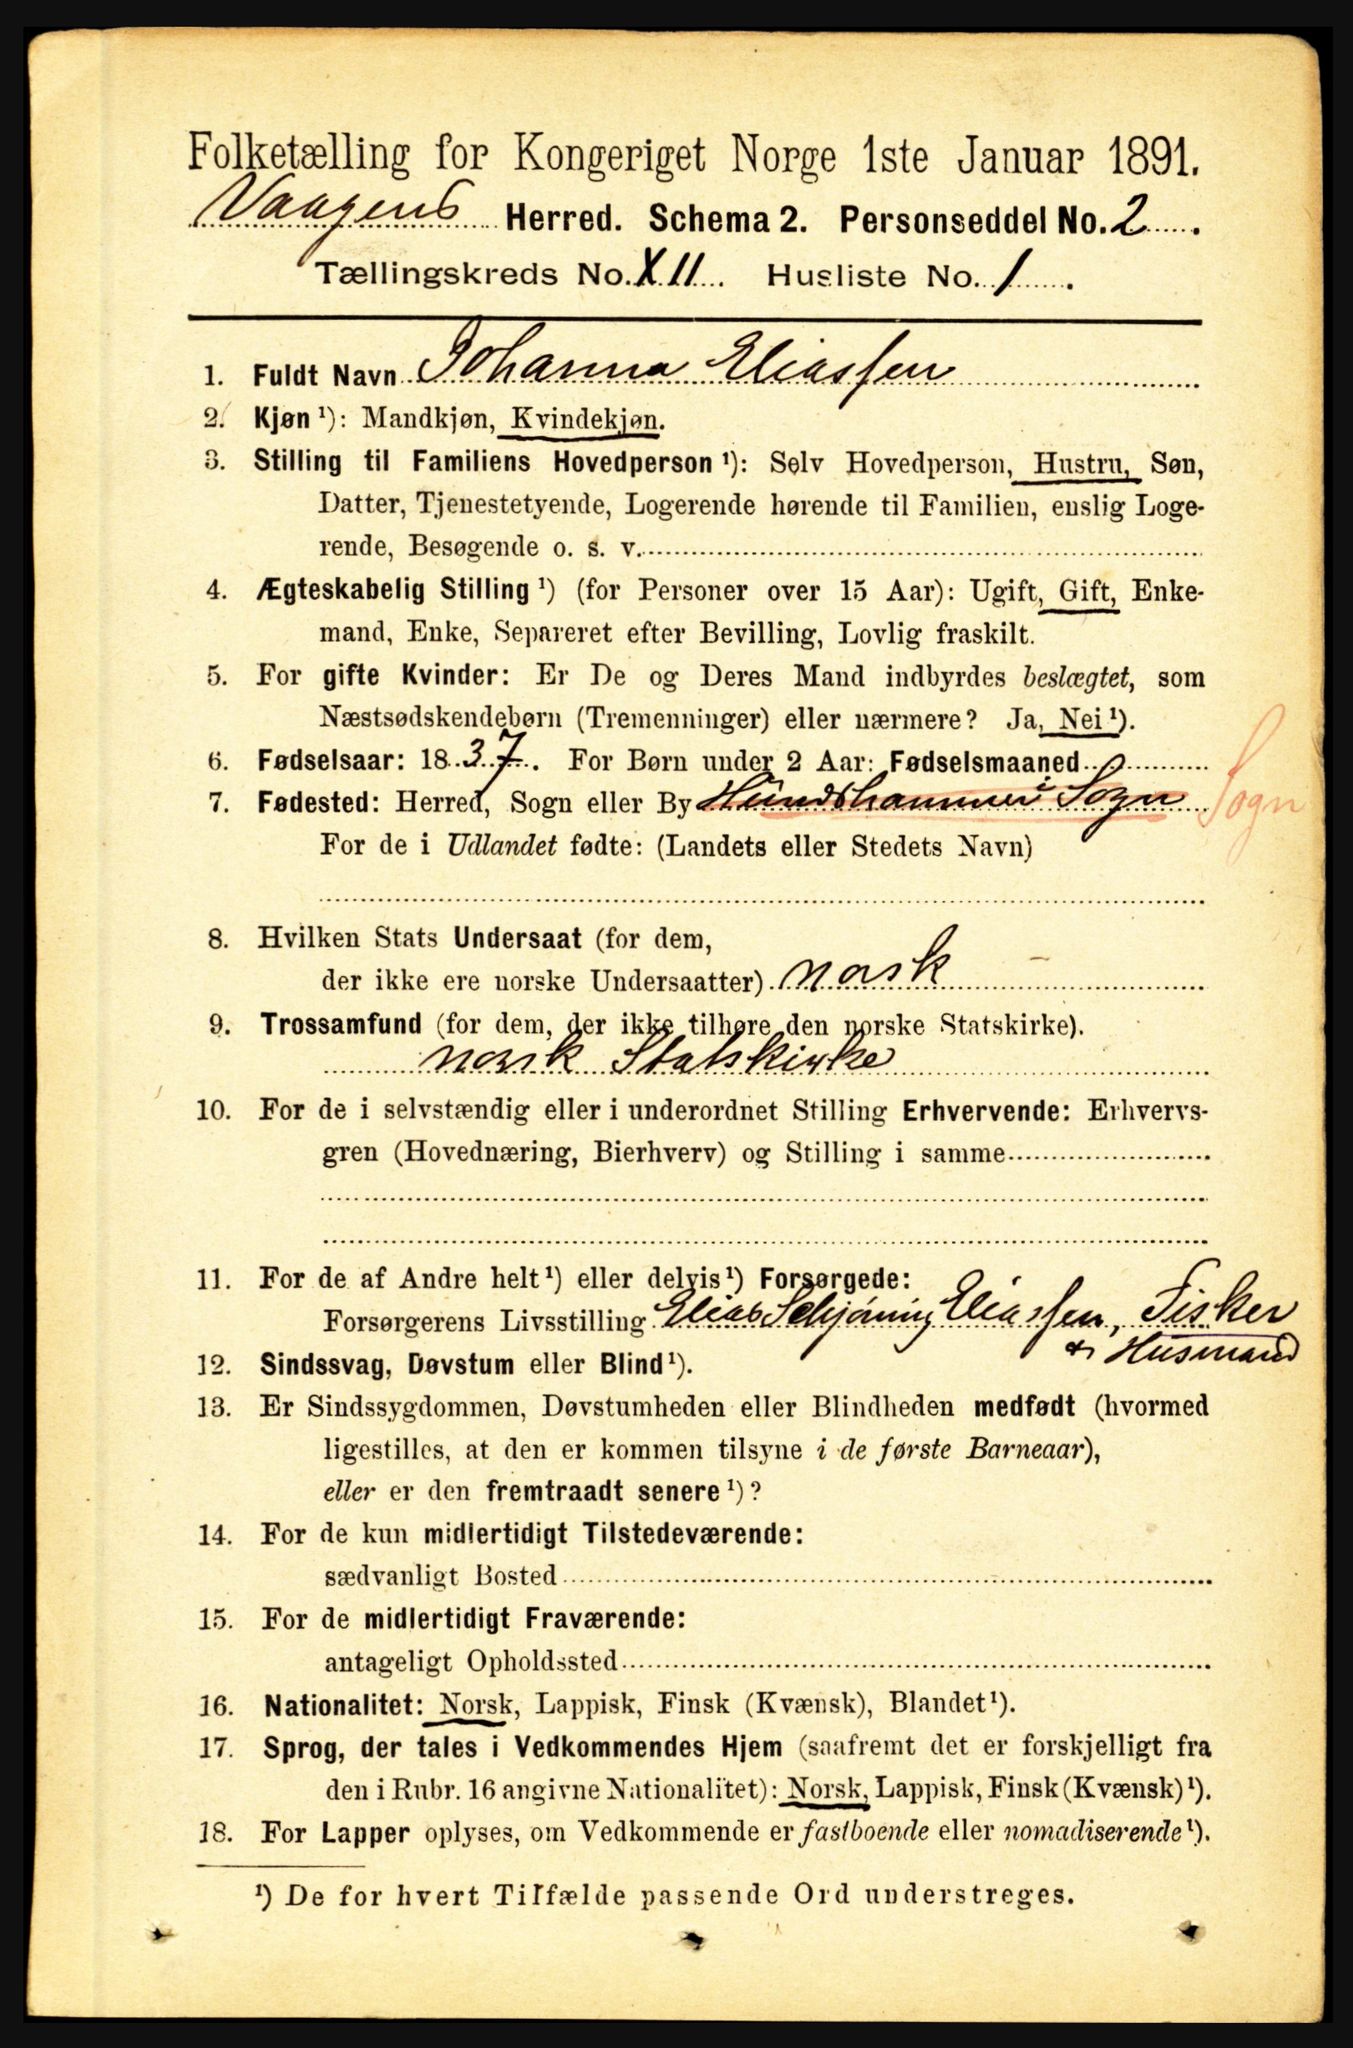 Folketælling for Kongeriget Norge 1ste Januar 1891.
Vaagens Herred. Schema 2. Personseddel No. 2.
Tællingskreds No. XII. Husliste No. 1.
1. Fuldt Navn Johanna Eliassen
2. Kjøn ¹): Mandkjøn, Kvindekjøn.
3. Stilling til Familiens Hovedperson ¹): Selv Hovedperson, Hustru, Søn,
Datter, Tjenestetyende, Logerende hørende til Familien, enslig Loge-
rende, Besøgende o. s. v.
4. Ægteskabelig Stilling ¹) (for Personer over 15 Aar): Ugift, Gift, Enke-
mand, Enke, Separeret efter Bevilling, Lovlig fraskilt.
5. For gifte Kvinder: Er De og Deres Mand indbyrdes beslægtet, som
Næstsødskendebørn (Tremenninger) eller nærmere? Ja, Nei ¹).
6. Fødselsaar: 1837. For Børn under 2 Aar: Fødselsmaaned
7. Fødested: Herred, Sogn eller By Hundshammer Sogn Sogn
For de i Udlandet fødte: (Landets eller Stedets Navn)
8. Hvilken Stats Undersaat (for dem,
der ikke ere norske Undersaatter) norsk
9. Trossamfund (for dem, der ikke tilhøre den norske Statskirke).
norsk Statskirke
10. For de i selvstændig eller i underordnet Stilling Erhvervende: Erhvervs-
gren (Hovednæring, Bierhverv) og Stilling i samme
11. For de af Andre helt ¹) eller delvis ¹) Forsørgede:
Forsørgerens Livsstilling Elias Schjöning Eliassen, Fisker
& Husmand
12. Sindssvag, Døvstum eller Blind ¹).
13. Er Sindssygdommen, Døvstumheden eller Blindheden medfødt (hvormed
ligestilles, at den er kommen tilsyne i de første Barneaar),
eller er den fremtraadt senere ¹)?
14. For de kun midlertidigt Tilstedeværende:
sædvanligt Bosted
15. For de midlertidigt Fraværende:
antageligt Opholdssted
16. Nationalitet: Norsk, Lappisk, Finsk (Kvænsk), Blandet ¹).
17. Sprog, der tales i Vedkommendes Hjem (saafremt det er forskjelligt fra
den i Rubr. 16 angivne Nationalitet): Norsk, Lappisk, Finsk (Kvænsk) ¹).
18. For Lapper oplyses, om Vedkommende er fastboende eller nomadiserende ¹).
¹) De for hvert Tilfælde passende Ord understreges.